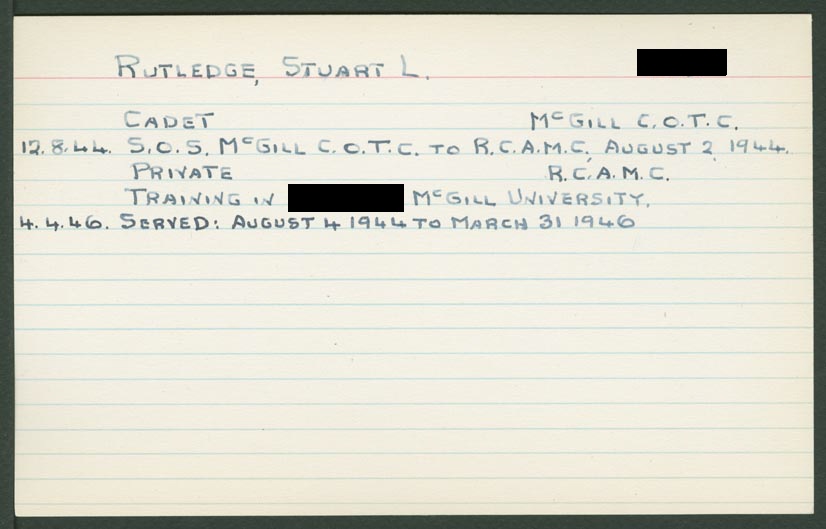 RUTLEDGE, STUART L.
CADET McGILL C.O.T.C.
12.8.44. S.O.S. McGILL C.O.T.C. TO R.C.A.M.C. AUGUST 2, 1944.
PRIVATE R.C.A.M.C.
TRAINING IN McGILL UNIVERSITY.
4.4.46. SERVED: AUGUST 4 1944 TO MARCH 31 1946